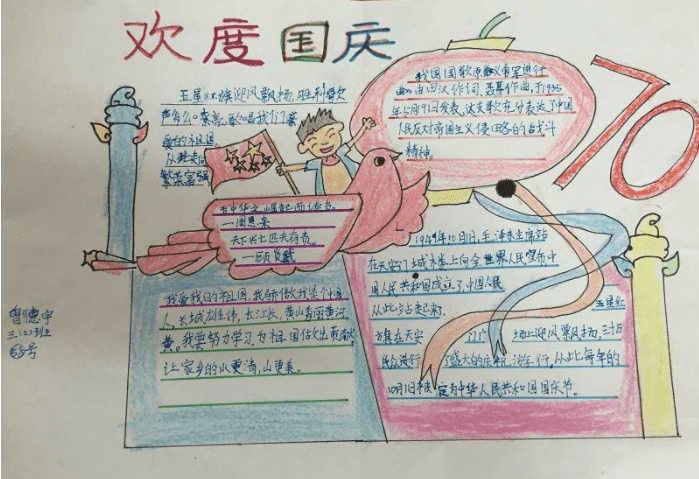 欢度国庆
70
五星红旗迎风飘扬,胜利歌
声多么
爱的祖国
从
繁荣富强
我国国歌原 义勇军进行
曲》由田汉作词,聂耳作曲,于1935
年 月9日发表,这支歌充分表达了中国
人民反对帝国主义侵略的 战斗
精神。
为中华之崛起而读书。
—周恩来
天下兴亡匹夫有责。
—顾炎武
1949年10月1日,毛泽东主席站
在天安门城楼上向全世界人民宣布中
国人民共和国成立了中国人民
从此站起来了。
五星红
旗在天安 门广 场上迎风飘扬,三十万
民众进行 了盛大的庆祝 游行,从此每年的
10月1日被 定为中华人民共和国国庆节。
我爱我的祖国,我骄傲我是个中国
人,长城 雄伟,长江长,黄山 黄河
黄。我要努力学习,为祖国 出
让家乡的水更清,山更美。
曾德宇
三(2)班
号